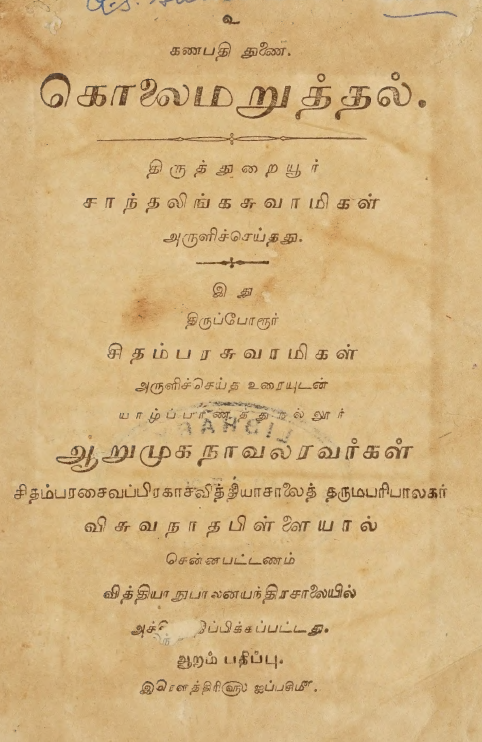 உ
கணபதி துணை.
கொலைமறுத்தல்.
திருத்துறையூர்
சாந்தலிங்கசுவாமிகள்
அருளிச்செய்தது.
இது
திருப்போரூர்
சிதம்பரசுவாமிகள்
அருளிச்செய்த உரையுடன்
யாழ்ப்பாணத்துநல்லூர்
ஆறுமுகநாவலரவர்கள்
சிதம்பரசைவப்பிரகாசவித்தியாசாலைத் தருமபரிபாலகர்
விசுவநாதபிள்ளையால்
சென்னபட்டணம்
வித்தியாநுபாலனயந்திரசாலையில்
ஆறாம் பதிப்பு.